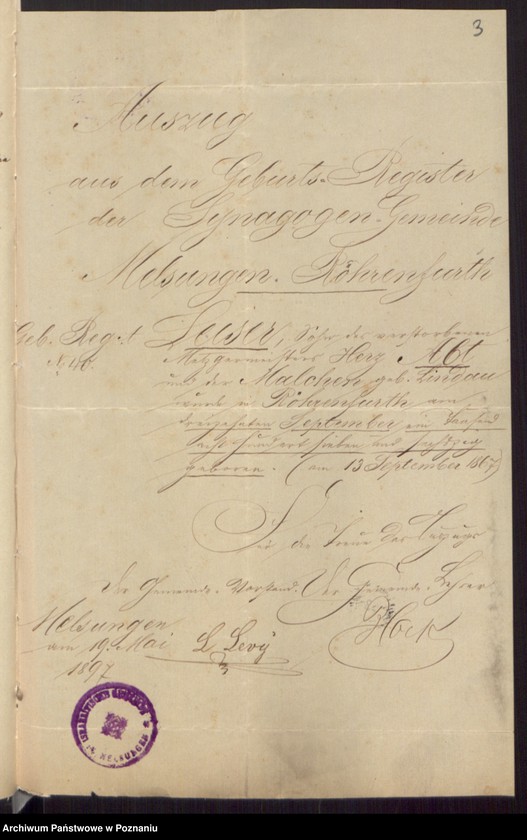 3
Auszug
aus dem Geburts-Register
der Synagogen-Gemeinde
Melsungen-Röhrenfurth
Geb. Reg.
No. 46.
Leiser, Sohn des verstorbenen
Metzgermeisters Herz Abt
und der Malchen geb. Lindau
wurde in Röhrenfurth am
dreizehnten September ein Tausend
acht hundert sieben und sechzig
geboren. (am 13 September 1867)
Für die Treue des Auszugs
Der Gemeinde-Vorstand. Der Gemeinde-Lehrer
Melsungen
am 19. Mai
1897
L Levy
Hock
ISRAELITISCHEN GEMEINDE
MELSUNGEN
Archiwum Państwowe w Poznaniu